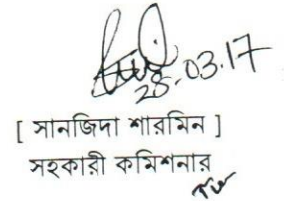 28.03.17
[ সানজিদা শারমিন ]
সহকারী কমিশনার